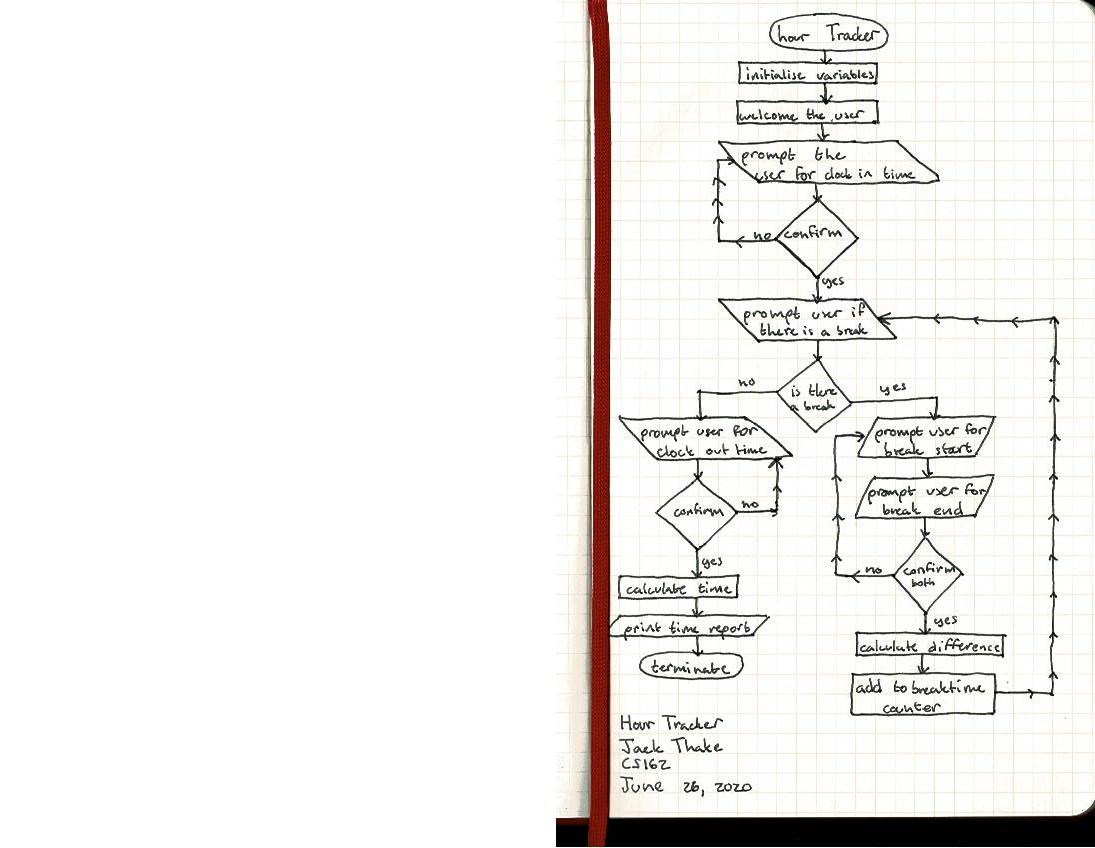 hour Tracker
initialise variables
welcome the user
prompt the
user for clock in time
confirm
no
yes
prompt user if
there is a break
is there
a break
no
yes
prompt user for
clock out time
confirm
no
yes
calculate time
print time report
terminate
prompt user for
break start
prompt user for
break end
confirm
both
no
yes
calculate difference
add to breaktime
counter
Hour Tracker
Jack Thake
CS162
June 26, 2020